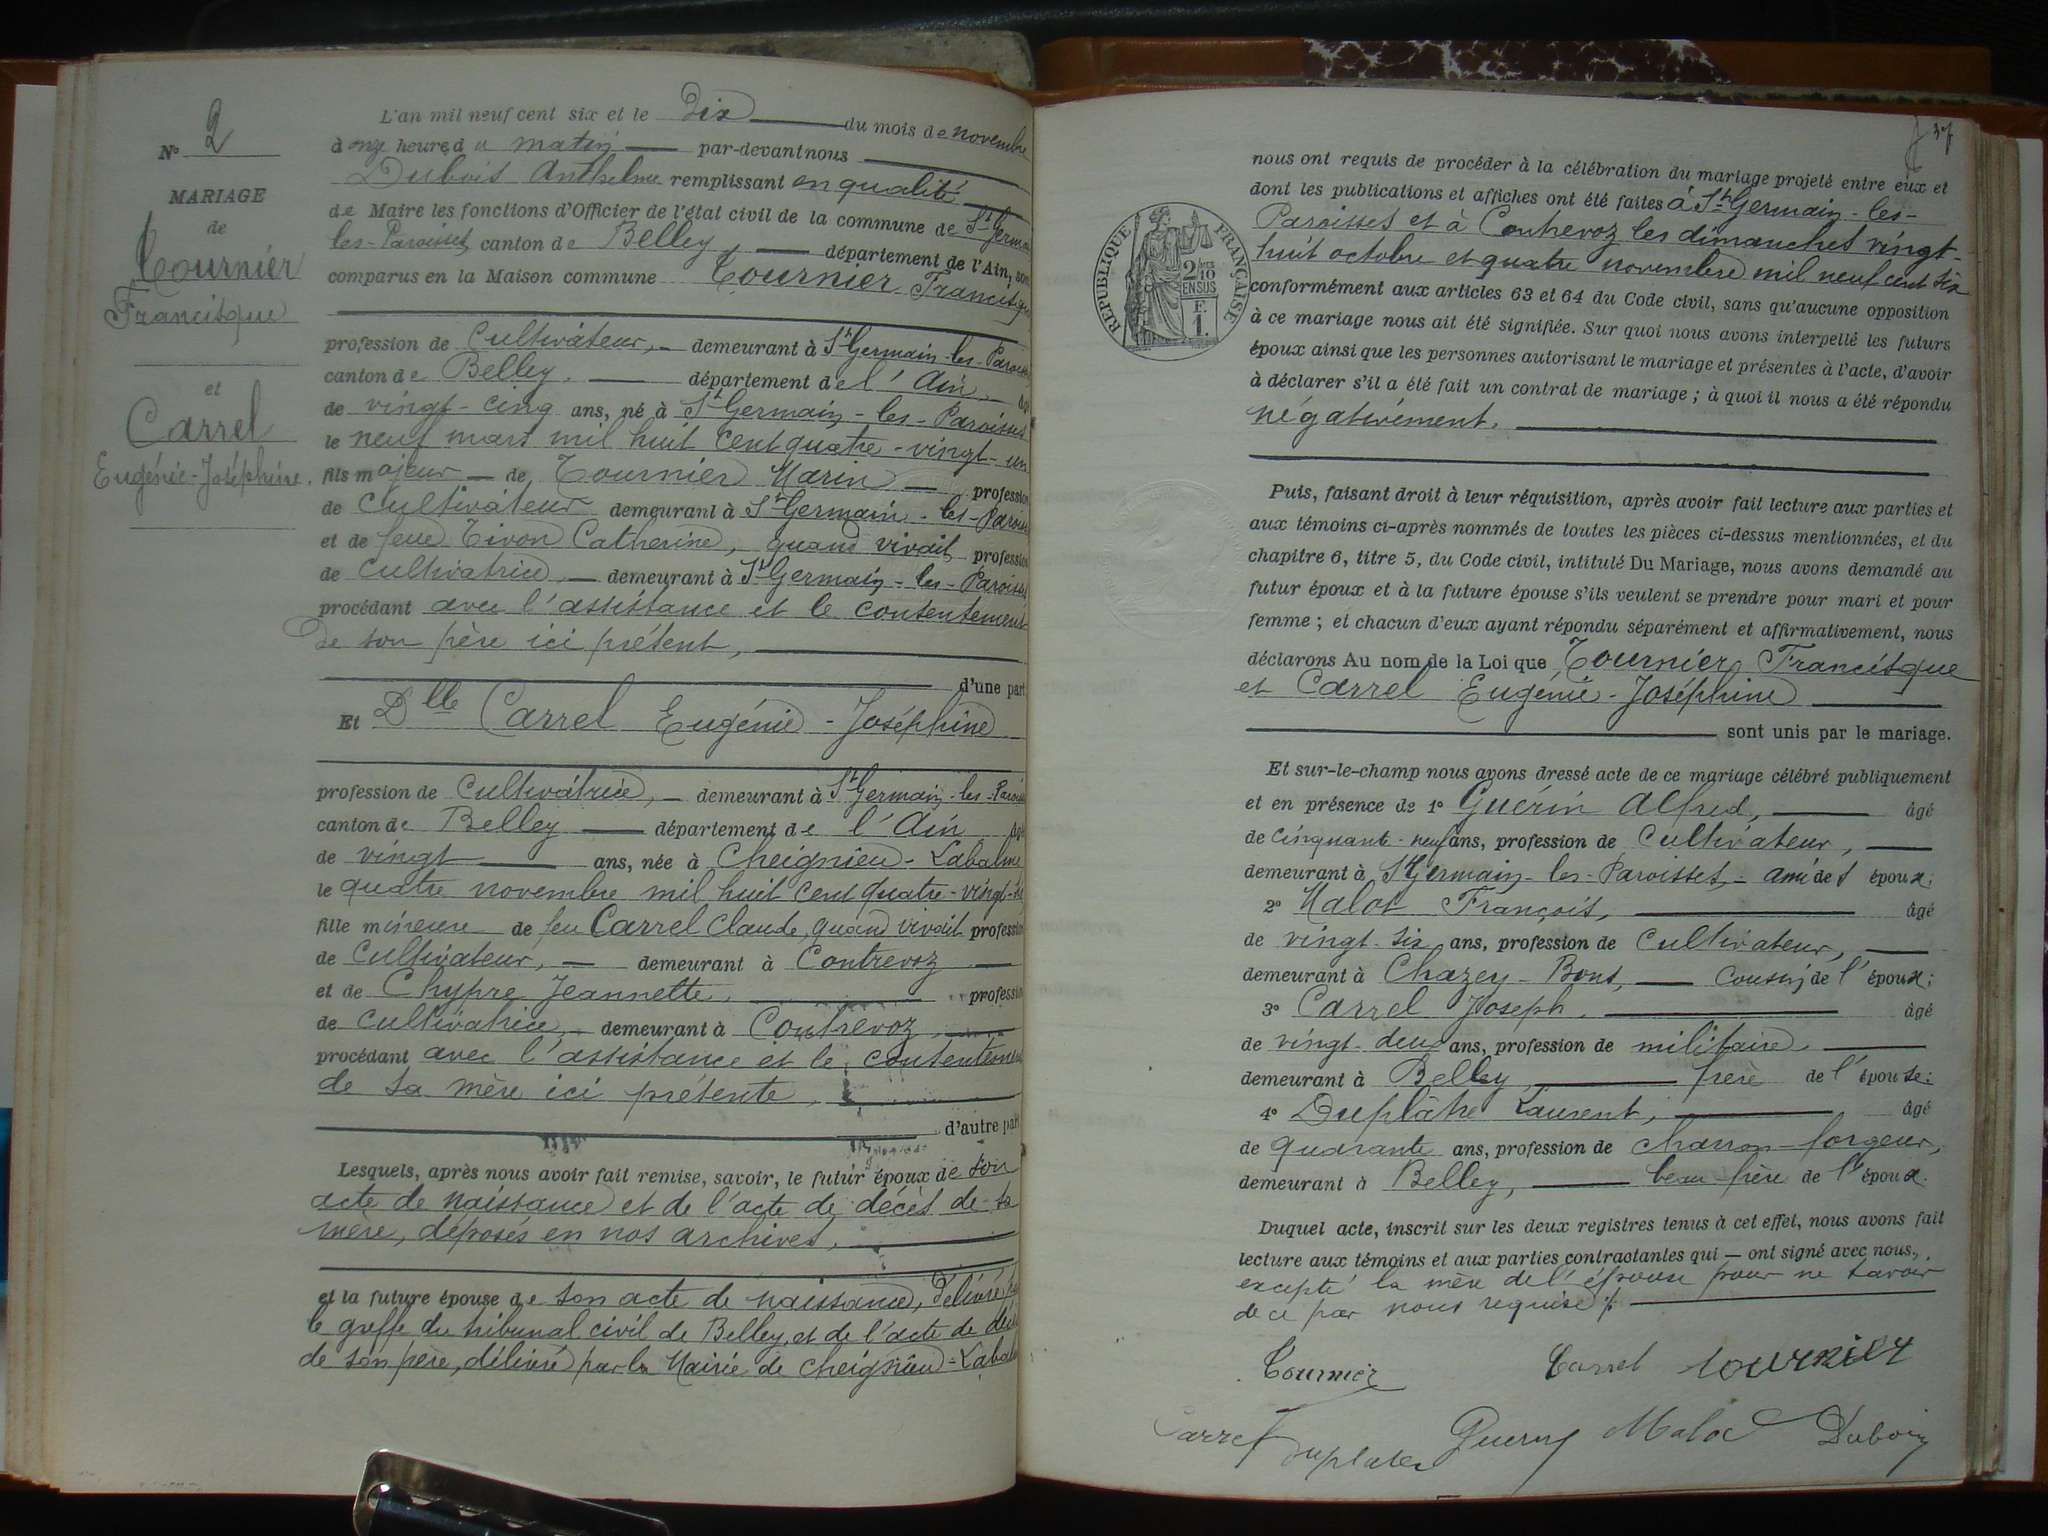 N° 2
MARIAGE
de
Tournier
Francisque
et
Carrel
Eugénie-Joséphine.
L'an mil neuf cent six et le Dix du mois de novembre
à onze heures du matin par-devant nous
Dubois Anthelme remplissant en qualité
de Maire les fonctions d'Officier de l'état civil de la commune de St Germain
les-Paroisses, canton de Belley, département de l'Ain, sont
comparus en la Maison commune Tournier Francisque
profession de Cultivateur, demeurant à St Germain-les-Paroisses
canton de Belley, département de l'Ain, âgé
de vingt-cinq ans, né à St Germain-les-Paroisses
le neuf mars mil huit cent quatre-vingt-un
fils majeur de Tournier Marin profession
de Cultivateur demeurant à St Germain-les-Paroisses
et de feue Tivon Catherine, quand vivait profession
de Cultivatrice, demeurant à St Germain-les-Paroisses
procédant avec l'assistance et le consentement
de son père ici présent,
d'une part
Et Dlle Carrel Eugénie-Joséphine
profession de Cultivatrice, demeurant à St Germain-les-Paroisses
canton de Belley département de l'Ain âgé
de vingt ans, née à Cheignieu-Labalme
le quatre novembre mil huit cent quatre-vingt-six
fille mineure de feu Carrel Claude, quand vivait profession
de Cultivateur, demeurant à Contrevoz
et de Chypre Jeannette, profession
de Cultivatrice, demeurant à Contrevoz,
procédant avec l'assistance et le consentement
de sa mère ici présente,
d'autre part
Lesquels, après nous avoir fait remise, savoir, le futur époux de son
acte de naissance et de l'acte de décès de sa
mère, déposés en nos archives,
et la future épouse de son acte de naissance, délivré par
le greffe du tribunal civil de Belley, et de l'acte de décès
de son père, délivré par la Mairie de Cheignieu-Labalme
37
RÉPUBLIQUE FRANÇAISE
2 10
EN SUS
F.
1.
nous ont requis de procéder à la célébration du mariage projeté entre eux et
dont les publications et affiches ont été faites à St Germain-les-
Paroisses et à Contrevoz les dimanches vingt-
huit octobre et quatre novembre mil neuf cent six
conformément aux articles 63 et 64 du Code civil, sans qu'aucune opposition
à ce mariage nous ait été signifiée. Sur quoi nous avons interpellé les futurs
époux ainsi que les personnes autorisant le mariage et présentes à l'acte, d'avoir
à déclarer s'il a été fait un contrat de mariage ; à quoi il nous a été répondu
négativement.
Puis, faisant droit à leur réquisition, après avoir fait lecture aux parties et
aux témoins ci-après nommés de toutes les pièces ci-dessus mentionnées, et du
chapitre 6, titre 5, du Code civil, intitulé Du Mariage, nous avons demandé au
futur époux et à la future épouse s'ils veulent se prendre pour mari et pour
femme ; et chacun d'eux ayant répondu séparément et affirmativement, nous
déclarons Au nom de la Loi que Tournier Francisque
et Carrel Eugénie-Joséphine
sont unis par le mariage.
Et sur-le-champ nous avons dressé acte de ce mariage célébré publiquement
et en présence de 1° Guérin Alfred, âgé
de cinquante-neuf ans, profession de Cultivateur,
demeurant à St Germain-les-Paroisses, ami des époux;
2° Malot François, âgé
de vingt-six ans, profession de Cultivateur,
demeurant à Chazey-Bons, cousin de l'époux;
3° Carrel Joseph, âgé
de vingt-deux ans, profession de militaire,
demeurant à Belley, frère de l'épouse;
4° Duplâtre Laurent, âgé
de quarante ans, profession de charron-forgeur,
demeurant à Belley, beau-frère de l'époux.
Duquel acte, inscrit sur les deux registres tenus à cet effet, nous avons fait
lecture aux témoins et aux parties contractantes qui — ont signé avec nous,
excepté la mère de l'épouse pour ne savoir
de ce par nous requise ./.
Tournier Carrel tournier
Carrel Duplatre Guerin Malot Dubois